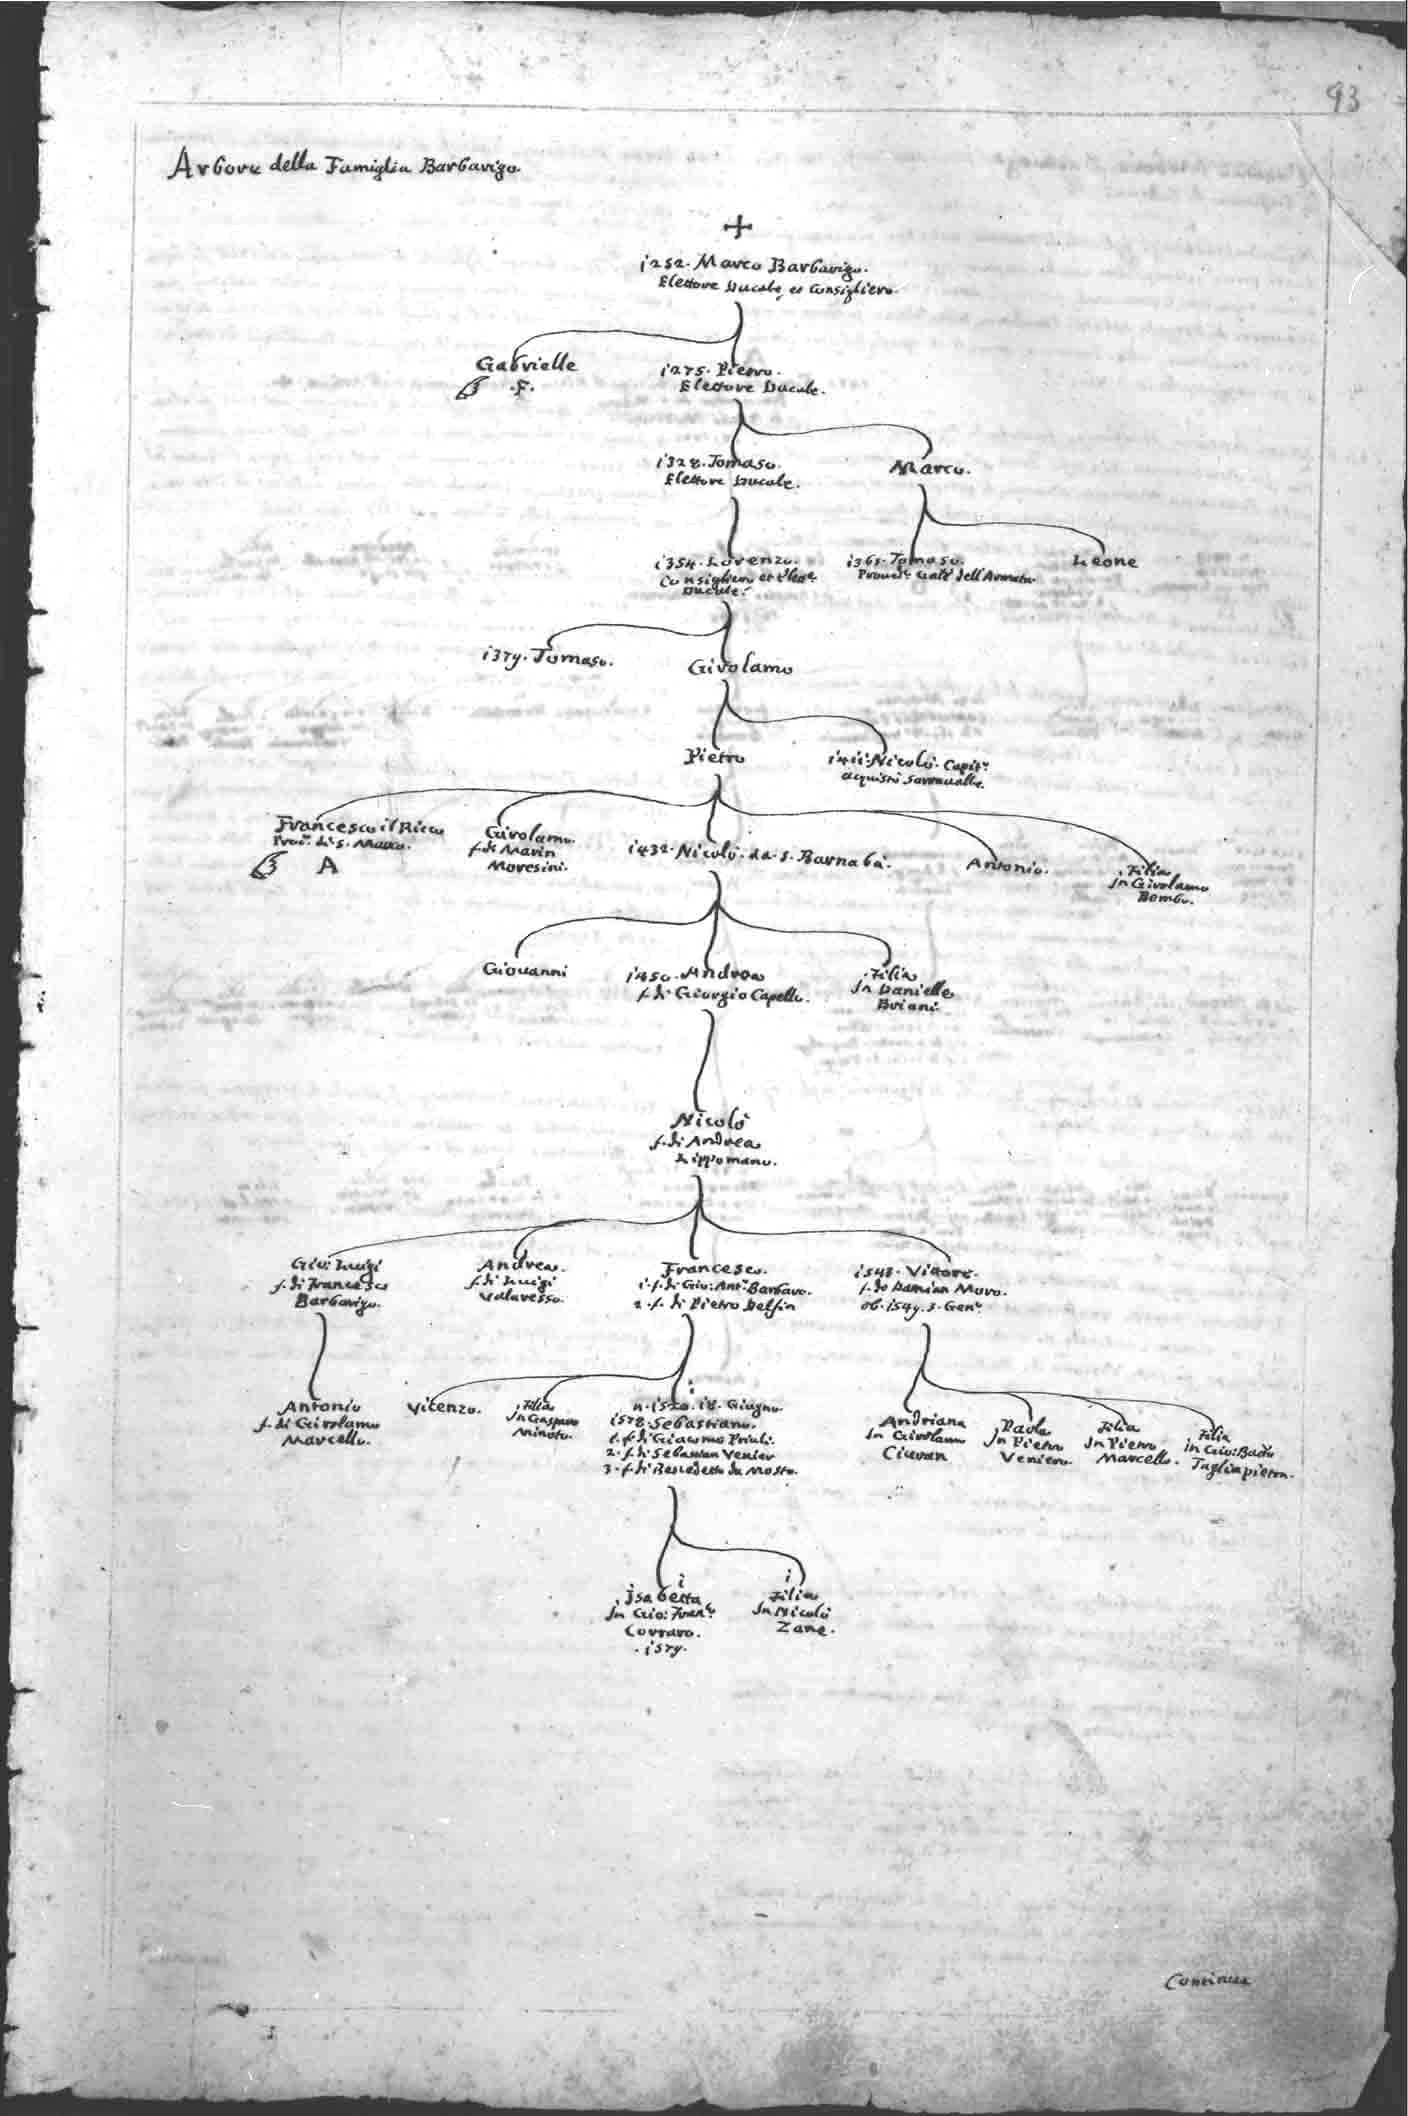 93
Arbore della Famiglia Barbarigo.
1252. Marco Barbarigo.
Elettore Ducale, et Consigliero.
Gabrielle
.F.
1275. Pietro.
Elettore Ducale.
1328. Tomaso.
Elettore Ducale.
Marco.
1354. Lorenzo.
Consigliero et Elet.e
Ducale.
1365. Tomaso.
Proued.r Gñal dell'Armata
Leone
1379. Tomaso.
Girolamo
Pietro
1411. Nicolò. Capit.o
acquistò Sarraualle.
Francesco il Ricco
Proc.r di S. Marco.
A
Girolamo.
f. di Marin
Moresini.
1432. Nicolò. da. S. Barnabà.
Antonio.
Filia
Jn Girolamo
Bembo.
Giouanni
1450. Andrea
f. di Giorgio Capello.
Filia
Jn Danielle
Briani.
Nicolò
f. di Andrea
Lippomano.
Gio: Luigi
f. di Francesco
Barbarigo.
Andrea.
f. di Luigi
Valaresso.
Francesco.
1. f. di Gio: Ant.o Barbaro.
2. f. di Pietro Delfin
1548. Vittore.
f. de Damian Moro.
ob. 1549. 3. Gen.o
Antonio
f. di Girolamo
Marcello.
Vicenzo.
Filia
Jn Gasparo
Minoto.
n. 1520. 18. Giugno.
1578. Sebastiano.
1. f. di Giacomo Priuli.
2. f. di Sebastian Venier
3. f. di Benedetto da Mosto.
Andriana
Jn Girolamo
Ciuran
Paola
Jn Pietro
Veniero.
Filia
Jn Pietro
Marcello.
Filia
in Gio: Batta
Tagliapietra.
i
Jsabetta
Jn Gio: Fran.o
Corraro.
.1579.
i
Filia
Jn Nicolò
Zane.
Continua